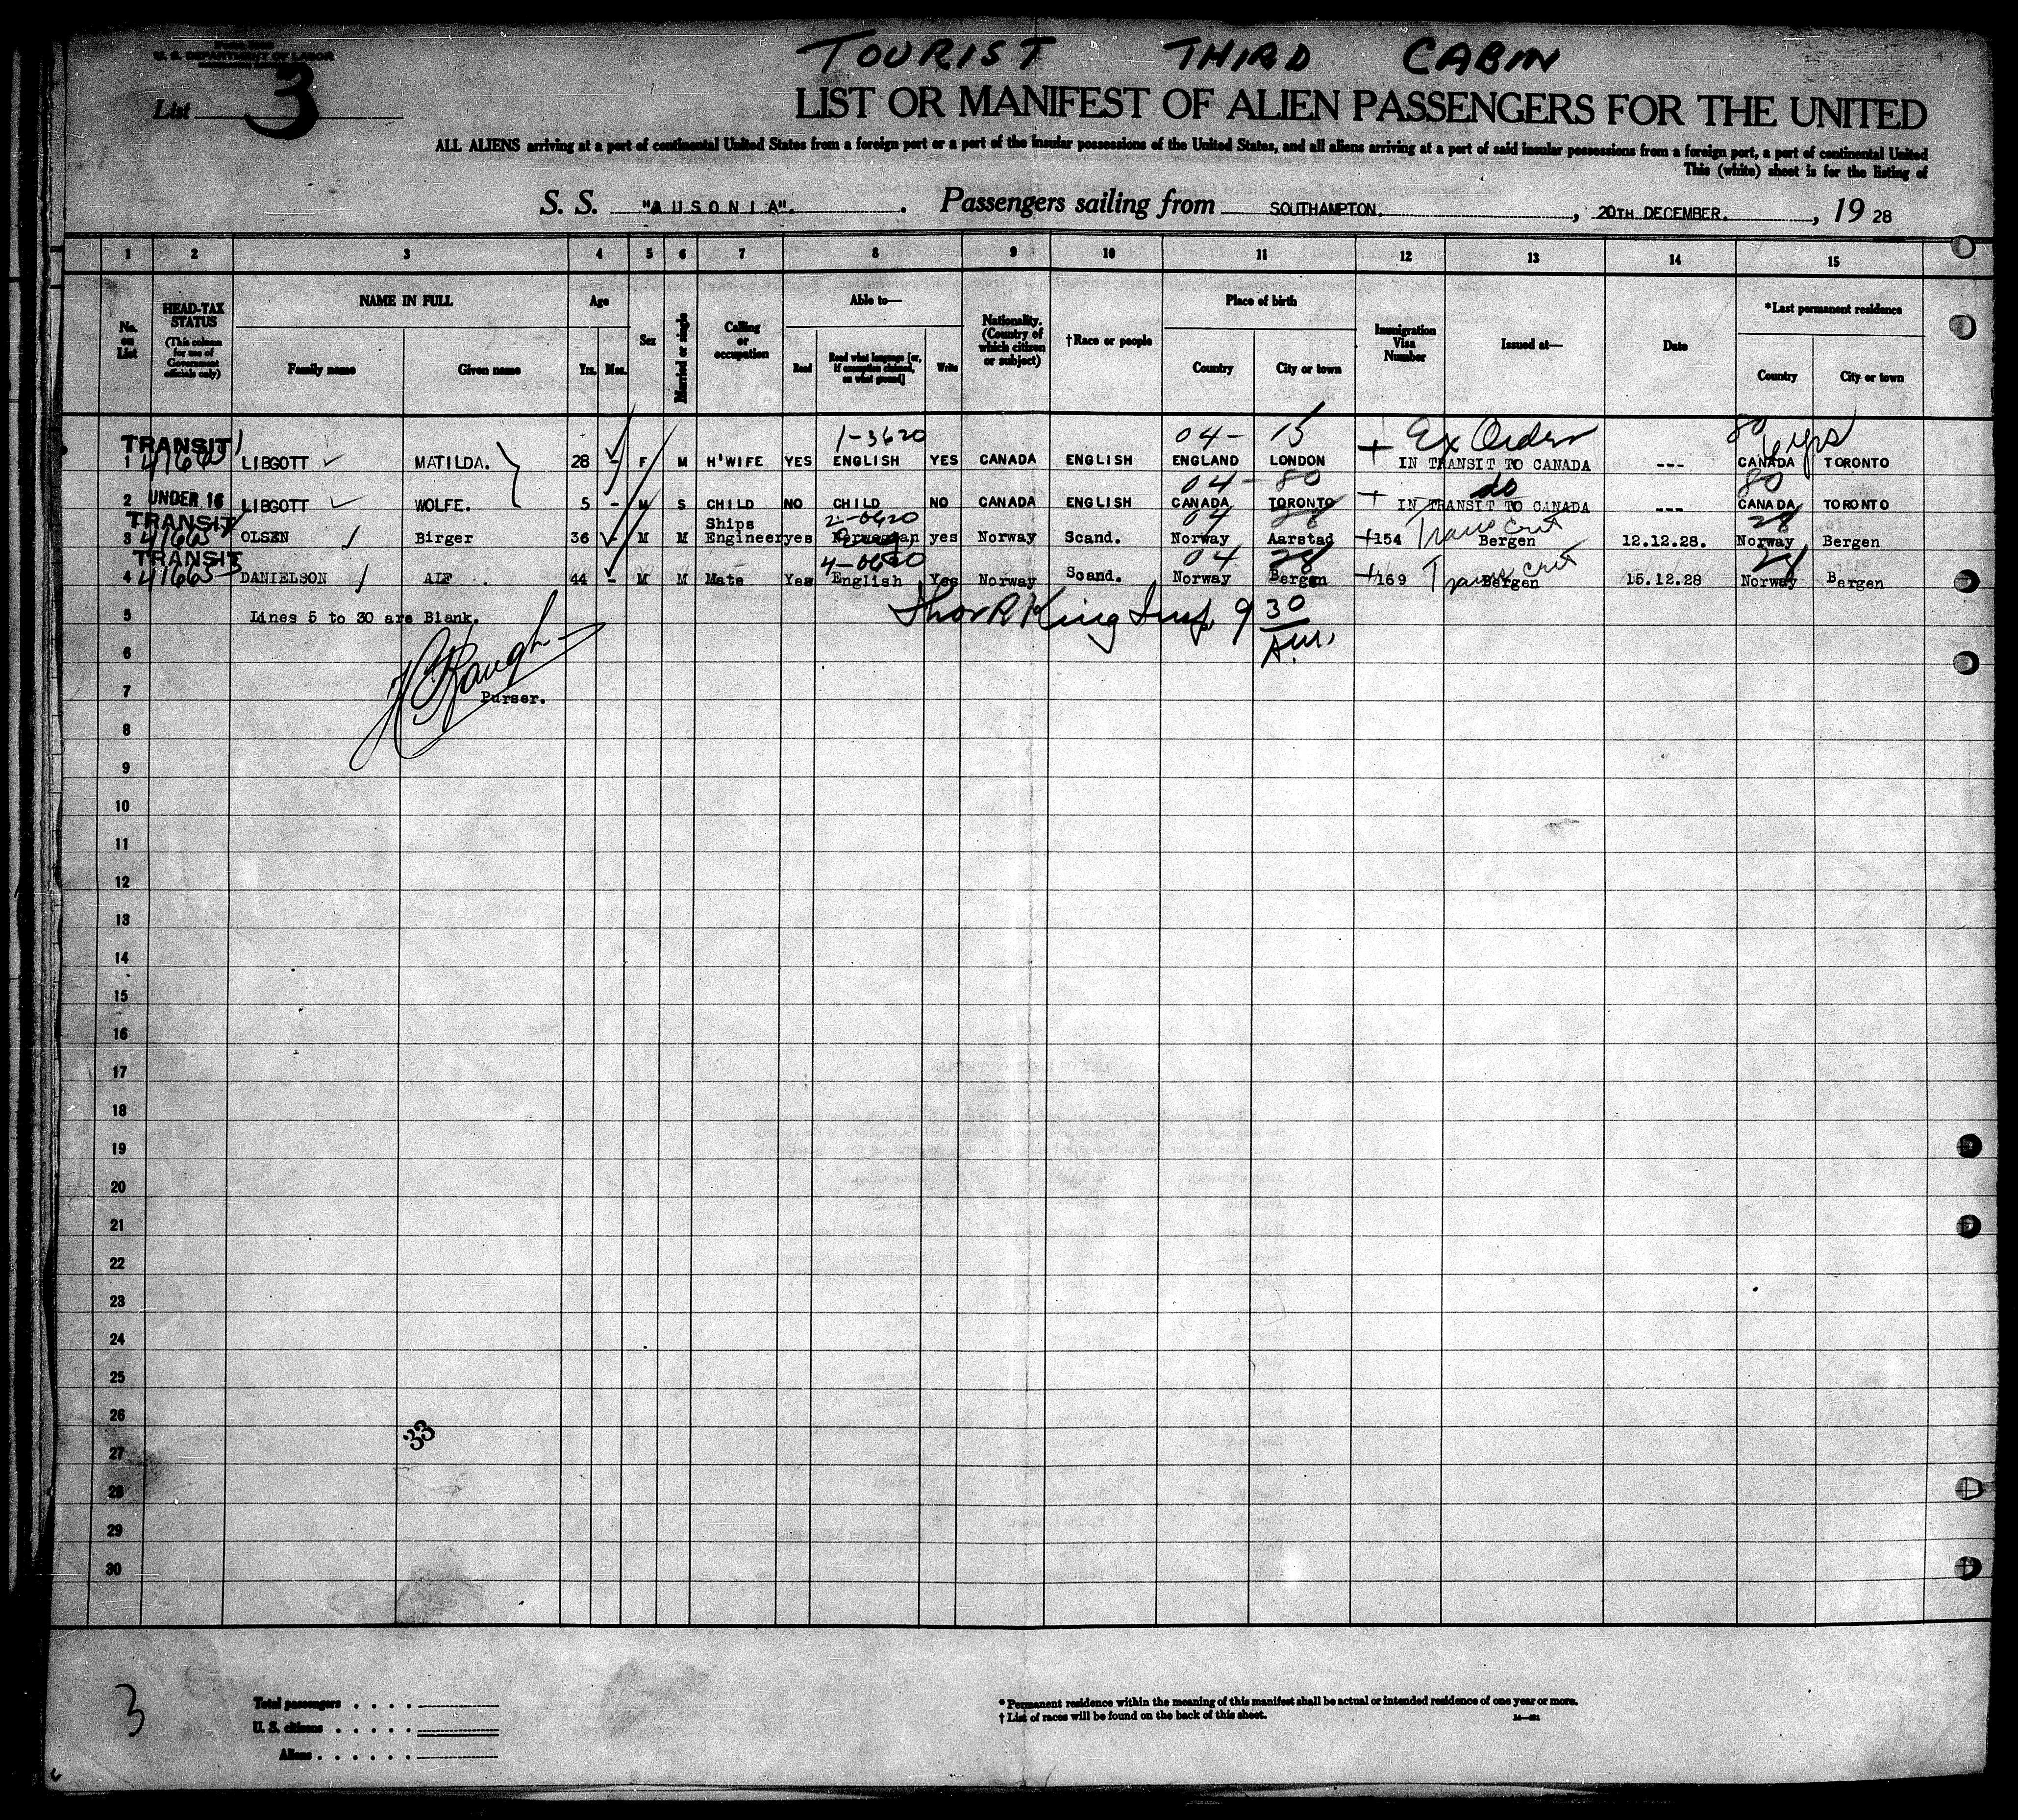 TOURIST THIRD CABIN
U. S. DEPARTMENT OF LABOR
List 3
LIST OR MANIFEST OF ALIEN PASSENGERS FOR THE UNITED
ALL ALIENS arriving at a port of continental United States from a foreign port or a port of the insular possessions of the United States, and all aliens arriving at a port of said insular possessions from a foreign port, a port of continental United
This (white) sheet is for the listing of
S. S. "AUSONIA". Passengers sailing from SOUTHAMPTON. , 20TH DECEMBER. , 19 28
1 2 3 4 5 6 7 8 9 10 11 12 13 14 15
No. on List
HEAD-TAX STATUS
(This column for use of Government officials only)
NAME IN FULL
Family name
Given name
Age
Yrs. Mos.
Sex
Married or single
Calling or occupation
Able to—
Read
Read what language [or, if exemption claimed, on what ground]
Write
Nationality. (Country of which citizen or subject)
†Race or people
Place of birth
Country
City or town
Immigration Visa Number
Issued at—
Date
*Last permanent residence
Country
City or town
1-3620 04- 15 Ex Order 80 6 yrs
TRANSIT
1 LIBGOTT MATILDA. 28 - F M H'WIFE YES ENGLISH YES CANADA ENGLISH ENGLAND LONDON + IN TRANSIT TO CANADA --- CANADA TORONTO
04 - 80 do 80
2 UNDER 16 LIBGOTT WOLFE. 5 - M S CHILD NO CHILD NO CANADA ENGLISH CANADA TORONTO + IN TRANSIT TO CANADA --- CANADA TORONTO
TRANSIT
2-0620 04 28 28
3 OLSEN Birger 36 - M M Ships Engineer yes Norwegian yes Norway Scand. Norway Aarstad +154 Bergen 12.12.28. Norway Bergen
TRANSIT
4-0620 04 28 28
4 DANIELSON ALF 44 - M M Mate Yes English Yes Norway Scand. Norway Bergen +169 Bergen 15.12.28 Norway Bergen
5 Lines 5 to 30 are Blank.
King Insp. 9 30 A.M.
6
7 Purser.
8
9
10
11
12
13
14
15
16
17
18
19
20
21
22
23
24
25
26
33
27
28
29
30
3
Total passengers . . . .
U. S. citizens . . . . .
Aliens . . . . . .
* Permanent residence within the meaning of this manifest shall be actual or intended residence of one year or more.
† List of races will be found on the back of this sheet.